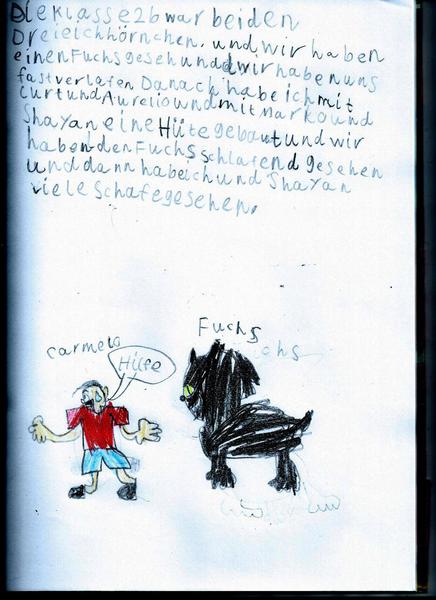 Die Klasse 2b war bei den
Dreieichhörnchen. und wir haben
einen Fuchs gesehn und wir haben uns
fast verlafen Danach habe ich mit
Curt und Aurelio und mit Marko und
Shayan eine Hüte gebaut und wir
haben den Fuchs schlafend gesehen
und dann habe ich und Shayan
viele Schafe gesehen.
Fuchs
Carmelo
Hilfe